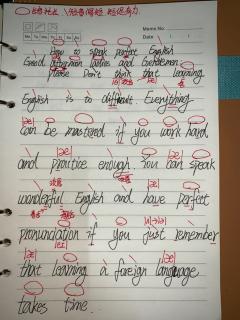 Memo No.
Mo Tu We Th Fr Sa Su
Date / /
How to speak perfect English
Good afternoon ladies and Gentlemen
Please Don't think that learning
English is to difficult. Everything
Can be mastered if you work hard
and practice enough. You can speak
wonderful English and have perfect
pronundation if you just remember
that learning a foreign language
takes time.